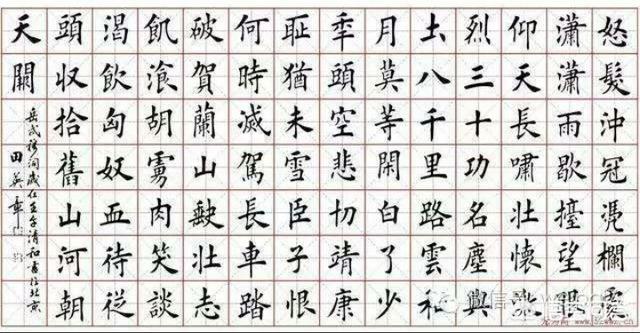 怒髮沖冠凴欄處
瀟瀟雨歇擡望眼
仰天長嘯壯懷激
烈三十功名塵與
土八千里路雲和
月莫等閑白了少
秊頭空悲切靖康
耻猶未雪臣子恨
何時滅駕長車踏
破賀蘭山缺壯志
飢湌胡虜肉笑談
渴飲匈奴血待從
頭収拾舊山河朝
天闕
岳武穆詞歲在壬午清和書於北京
田英章